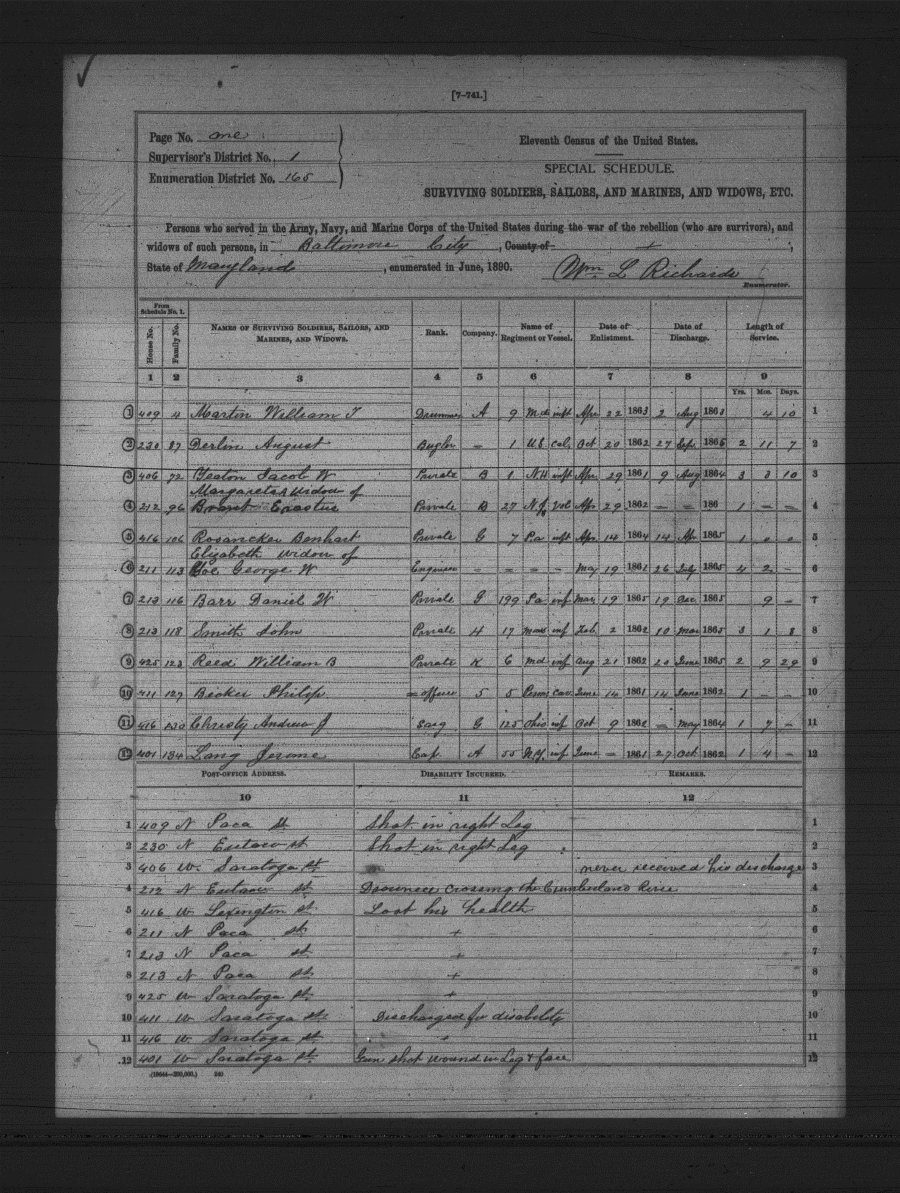 [7-741.]
Page No. one
Supervisor's District No. 1
Enumeration District No. 165
Eleventh Census of the United States.
SPECIAL SCHEDULE.
SURVIVING SOLDIERS, SAILORS, AND MARINES, AND WIDOWS, ETC.
Persons who served in the Army, Navy, and Marine Corps of the United States during the war of the rebellion (who are survivors), and
widows of such persons, in Baltimore City, County of +;
State of Maryland, enumerated in June, 1890. Wm L Richards
Enumerator.
From Schedule No. 1.
House No. Family No. NAMES OF SURVIVING SOLDIERS, SAILORS, AND MARINES, AND WIDOWS. Rank. Company. Name of Regiment or Vessel. Date of Enlistment. Date of Discharge. Length of Service.
1 2 3 4 5 6 7 8 9
Yrs. Mos. Days.
1 409 4 Martin William T Drummer A 9 Md inft Apr 22 1863 2 Aug 1863 4 10 1
2 230 87 Derlin August Bugler - 1 US cal. Oct 20 1862 27 Sept 1865 2 11 7 2
3 406 72 Yeaton Jacob W Private B 1 N H inft Apr 29 1861 9 Aug 1864 3 3 10 3
Margaretas widow of
4 212 96 Brant Erastus Private B 27 N.J. Vol Apr 29 1862 - - 186 1 - - 4
5 416 106 Rosancker Benhart Private G 7 Pa inft Apr 14 1864 14 Apr 1865 1 0 0 5
Elizabeth widow of
6 211 113 George W Engineer - - - - May 19 1861 26 July 1865 4 2 - 6
7 213 116 Barr Daniel W Private G 199 Pa inf 19 1865 19 Dec 1865 9 - 7
8 213 118 Smith John Private H 17 mass inf Feb 2 1862 10 Mar 1865 3 1 8 8
9 425 123 Reed William B Private K 6 md inf Aug 21 1862 20 June 1865 2 9 29 9
10 411 127 Becker Philip officer 5 5 Penn cav June 14 1861 14 June 1862 1 - - 10
11 416 130 Christy Andrew J Sarg G 125 Ohio inf Oct 9 1862 - May 1864 1 7 - 11
12 401 134 Lang Jerome Cap A 55 N.Y. inf June - 1861 27 Oct 1862 1 4 - 12
POST-OFFICE ADDRESS. DISABILITY INCURRED. REMARKS.
10 11 12
1 409 N Paca St Shot in right Leg 1
2 230 N Eutaw st Shot in right Leg 2
3 406 W. Saratoga st never received his discharge 3
4 212 N Eutaw st Drownded crossing the Cumberland River 4
5 416 W Lexington st Lost his health 5
6 211 N Paca st + 6
7 213 N Paca st + 7
8 213 N Paca st + 8
9 425 W Saratoga st + 9
10 411 W Saratoga st Discharged for disability 10
11 416 W Saratoga st + 11
12 401 W Saratoga st Gun shot wound in Leg & face 12